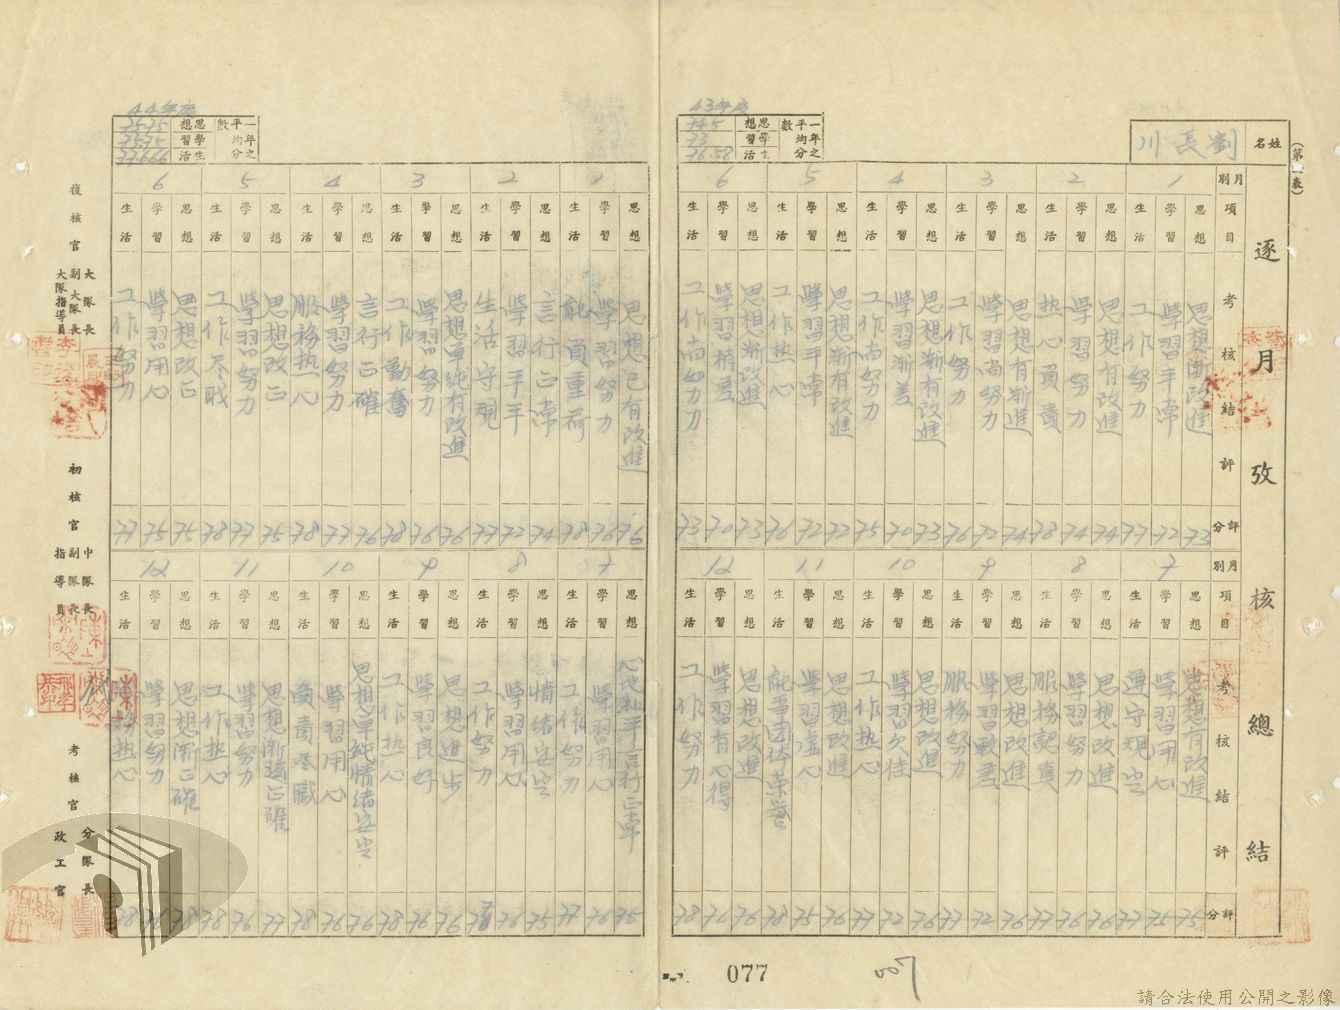 (第 表)
姓名 劉長川
逐月攷核總結
43年度
一年之平均分數
思想 74.5
學習 73
生活 76.58
月別 1 2 3 4 5 6
項目 思想 學習 生活 思想 學習 生活 思想 學習 生活 思想 學習 生活 思想 學習 生活 思想 學習 生活
考核結評
思想漸改進
學習平常
工作努力
思想有改進
學習努力
热心負責
思想有漸進
學習尚努力
工作努力
思想漸有改進
學習漸差
工作尚努力
思想漸有改進
學習平常
工作热心
思想漸改進
學習稍差
工作尚努力
評分 73 72 77 74 74 78 74 72 76 73 70 75 72 72 76 73 70 73
月別 7 8 9 10 11 12
項目 思想 學習 生活 思想 學習 生活 思想 學習 生活 思想 學習 生活 思想 學習 生活 思想 學習 生活
考核結評
思想有改進
學習用心
遵守規定
思想改進
學習努力
服務認真
思想改進
學習較差
服務努力
思想改進
學習欠佳
工作热心
思想改進
學習虛心
能爭团体荣誉
思想改進
學習有心得
工作努力
評分 75 75 77 76 76 77 76 72 77 76 72 77 76 75 78 76 76 78
44年度
一年之平均分數
思想 75.75
學習 75.75
生活 77.666
1 2 3 4 5 6
思想 學習 生活 思想 學習 生活 思想 學習 生活 思想 學習 生活 思想 學習 生活 思想 學習 生活
思想已有改進
學習努力
能負重荷
言行正常
學習平平
生活守規
思想單純有改進
學習努力
工作勤奮
言行正確
學習努力
服務热心
思想改正
學習努力
工作尽职
思想改正
學習用心
工作努力
76 76 78 74 72 77 76 76 78 76 77 78 75 77 78 75 75 77
7 8 9 10 11 12
思想 學習 生活 思想 學習 生活 思想 學習 生活 思想 學習 生活 思想 學習 生活 思想 學習 生活
心地和平言行正常
學習用心
工作努力
情绪安定
學習用心
工作努力
思想進步
學習良好
工作热心
思想單純情绪安定
學習用心
負責尽职
思想漸趨正確
學習努力
工作热心
思想漸正確
學習努力
服務热心
75 76 77 75 76 78 76 76 78 76 76 78 77 76 78 78 76 78
複核官 大隊長 副大隊長 大隊指導員
初核官 中隊長 副隊長 指導員
考核官 分隊長 政工官
077
007
請合法使用公開之影像